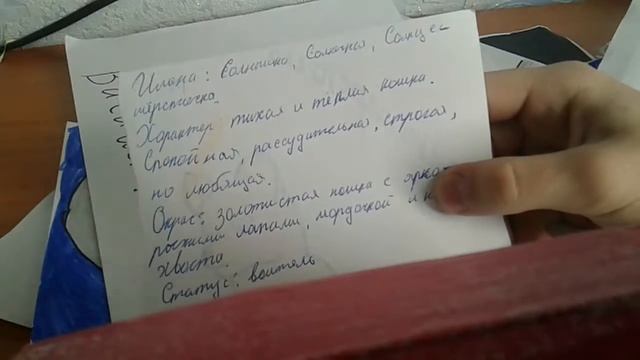 Имена: Солнышко, Солнечная, Солнцес
шёрсточка.
Характер: тихая и тёплая кошка.
Спокойная, рассудительная, строгая,
но любящая.
Окрас: золотистая кошка с ярко-
рыжими лапами, мордочкой и
хвоста.
Статус: воитель